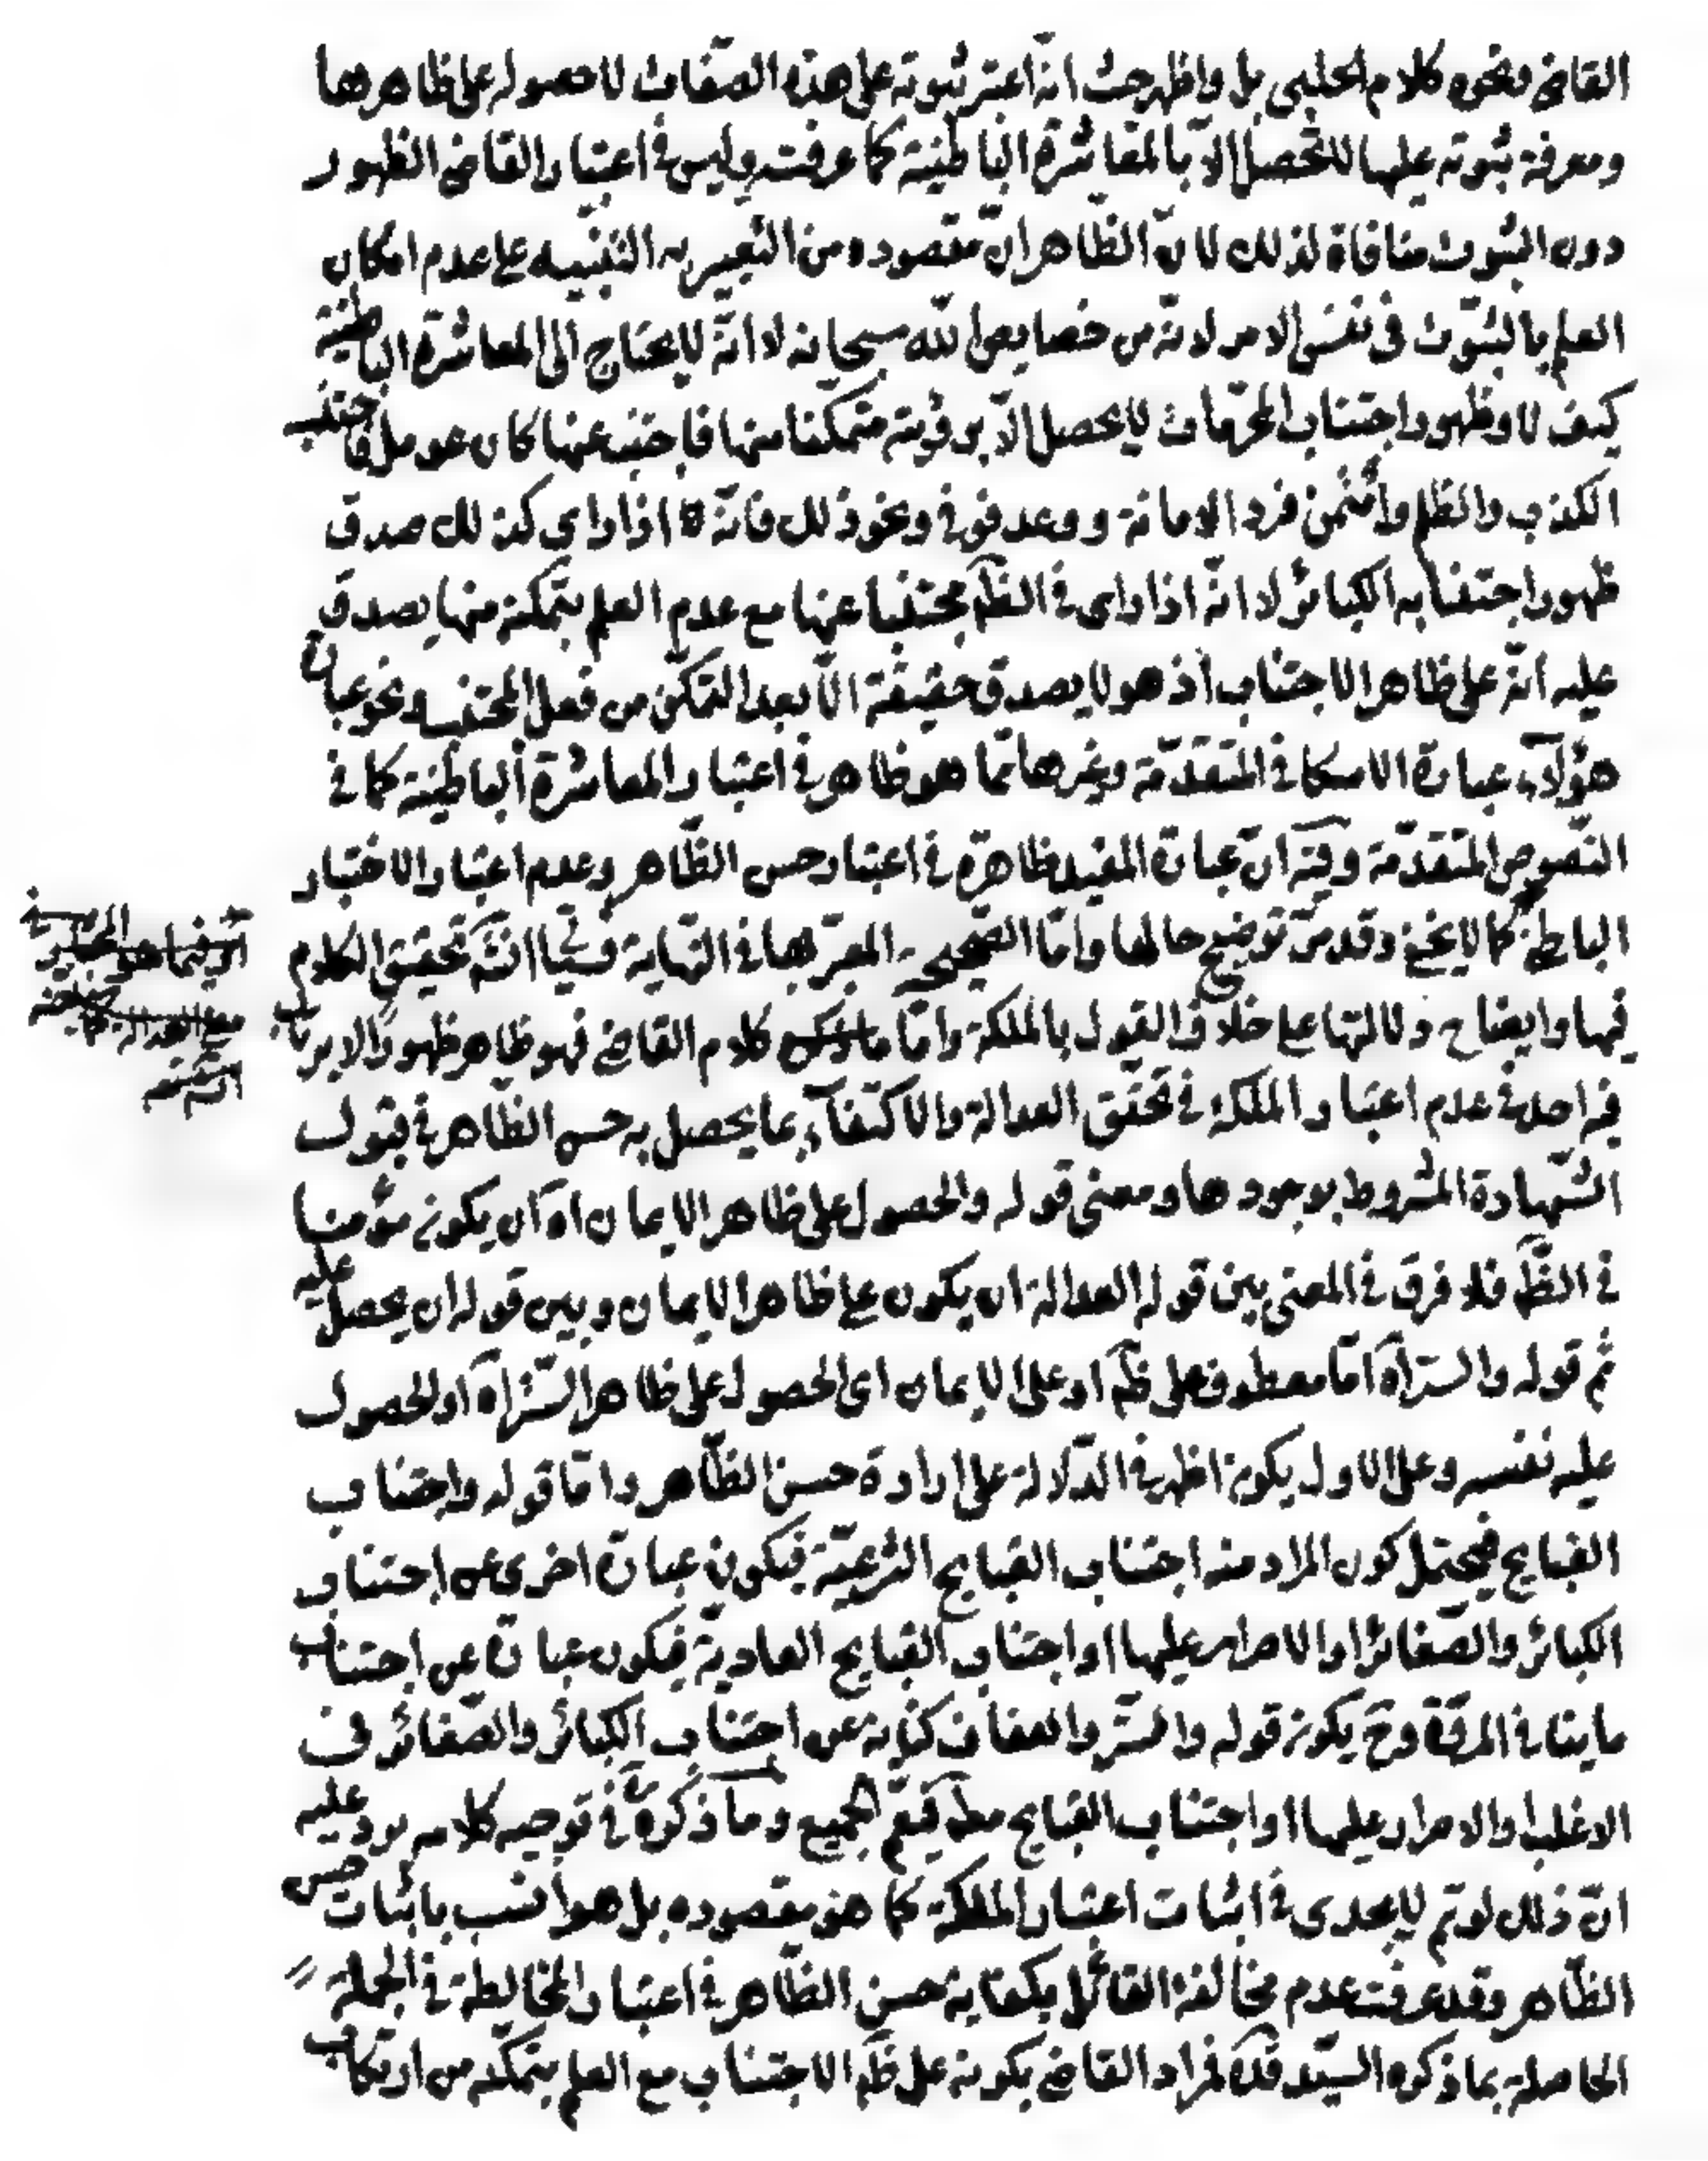 القاضى ونحوه كلام الحلبى بل واظهر حيث انّه اعتبر ثبوته على هذه الصّفات لا حصوله على ظاهرها
ومعرفة ثبوته عليها لا تحصل الّا بالمعاشرة الباطنية كما عرفت وليس فى اعتبار القاضى الظهور
دون الثبوت منافاة لذلك لانّ الظاهر انّ مقصوده من التعبير به التنبيه على عدم امكان
العلم بالثبوت فى نفس الامر لانّه من خصايص الله سبحانه لا انّه لا يحتاج الى المعاشرة الباطنية
كيف لا وظهور اجتناب المحرّمات لا يحصل الّا برؤيته متمكنا منها فاجتنب عنها كان عومل فاجتنب
الكذب والظلم وأئتمن فرد الامانة ووعد فوفى ونحو ذلك فانّه اذا راى كذلك صدق
ظهور اجتنابه الكبائر لا انّه اذا راى فى الظّ مجتنبا عنها مع عدم العلم بتمكنه منها يصدق
عليه انّه على ظاهر الاجتناب اذ هو لا يصدق حقيقة الّا بعد التمكّن من فعل المجتنب ونحو عبارة
هؤلاء عبارة الاسكافى المتقدّمة وغيرها ممّا هو ظاهر فى اعتبار المعاشرة الباطنية كما فى
النّصوص المتقدّمة وفيه انّ عبارة المفيد ظاهرة فى اعتبار حسن الظّاهر وعدم اعتبار الاختبار
الباطن كما لا يخفى وقد مرّ توضيح حالها وامّا الصّحيحة المعبّر بها فى النّهاية فسيأ انشَ تحقيق الكلام
فيها وايضاح دلالتها على خلاف القول بالملكة وامّا كلام القاضى فهو ظاهر ظهورا لا يرتاب
فيه احد فى عدم اعتبار الملكة فى تحقّق العدالة والاكتفاء بما يحصل به حسن الظّاهر فى قبول
الشّهادة المشروط بوجودها ومعنى قوله والحصول على ظاهر الايمان اه ان يكون مؤمنا
فى الظّ فلا فرق فى المعنى بين قوله العدالة ان يكون على ظاهر الايمان وبين قوله ان يحصل عليه
ثم قوله والستر اه امّا معطوف على ظّ او على الايمان اى الحصول على ظاهر السّتر اه او الحصول
عليه نفسه وعلى الاول يكون اظهر فى الدّلالة على ارادة حسن الظّاهر وامّا قوله واجتناب
القبايح فيحتمل كون المراد منه اجتناب القبايح الشّرعيّة فيكون عبارة اخرى عن اجتناب
الكبائر والصّغائر او الاصرار عليها او اجتناب القبايح العاديّة فيكون عبارة عن اجتناب
ما ينافى المروّة وح يكون قوله والسّتر والعفاف كناية عن اجتناب الكبائر والصّغائر فى
الاغلب او الاصرار عليها او اجتناب القبايح مط فيعمّ الجميع وما ذكره فى توجيه كلامه يرد عليه
انّ ذلك لو تم لا يجدى فى اثبات اعتبار الملكة كما هو مقصوده بل هو انسب باثبات حسن
الظّاهر وقد عرفت عدم مخالفة القائل بكفاية حسن الظّاهر فى اعتبار المخالطة فى الجملة
الحاصلة بما ذكره السيّد قدّه فمراد القاضى بكونه على ظّ الاجتناب مع العلم بتمكّنه من ارتكاب